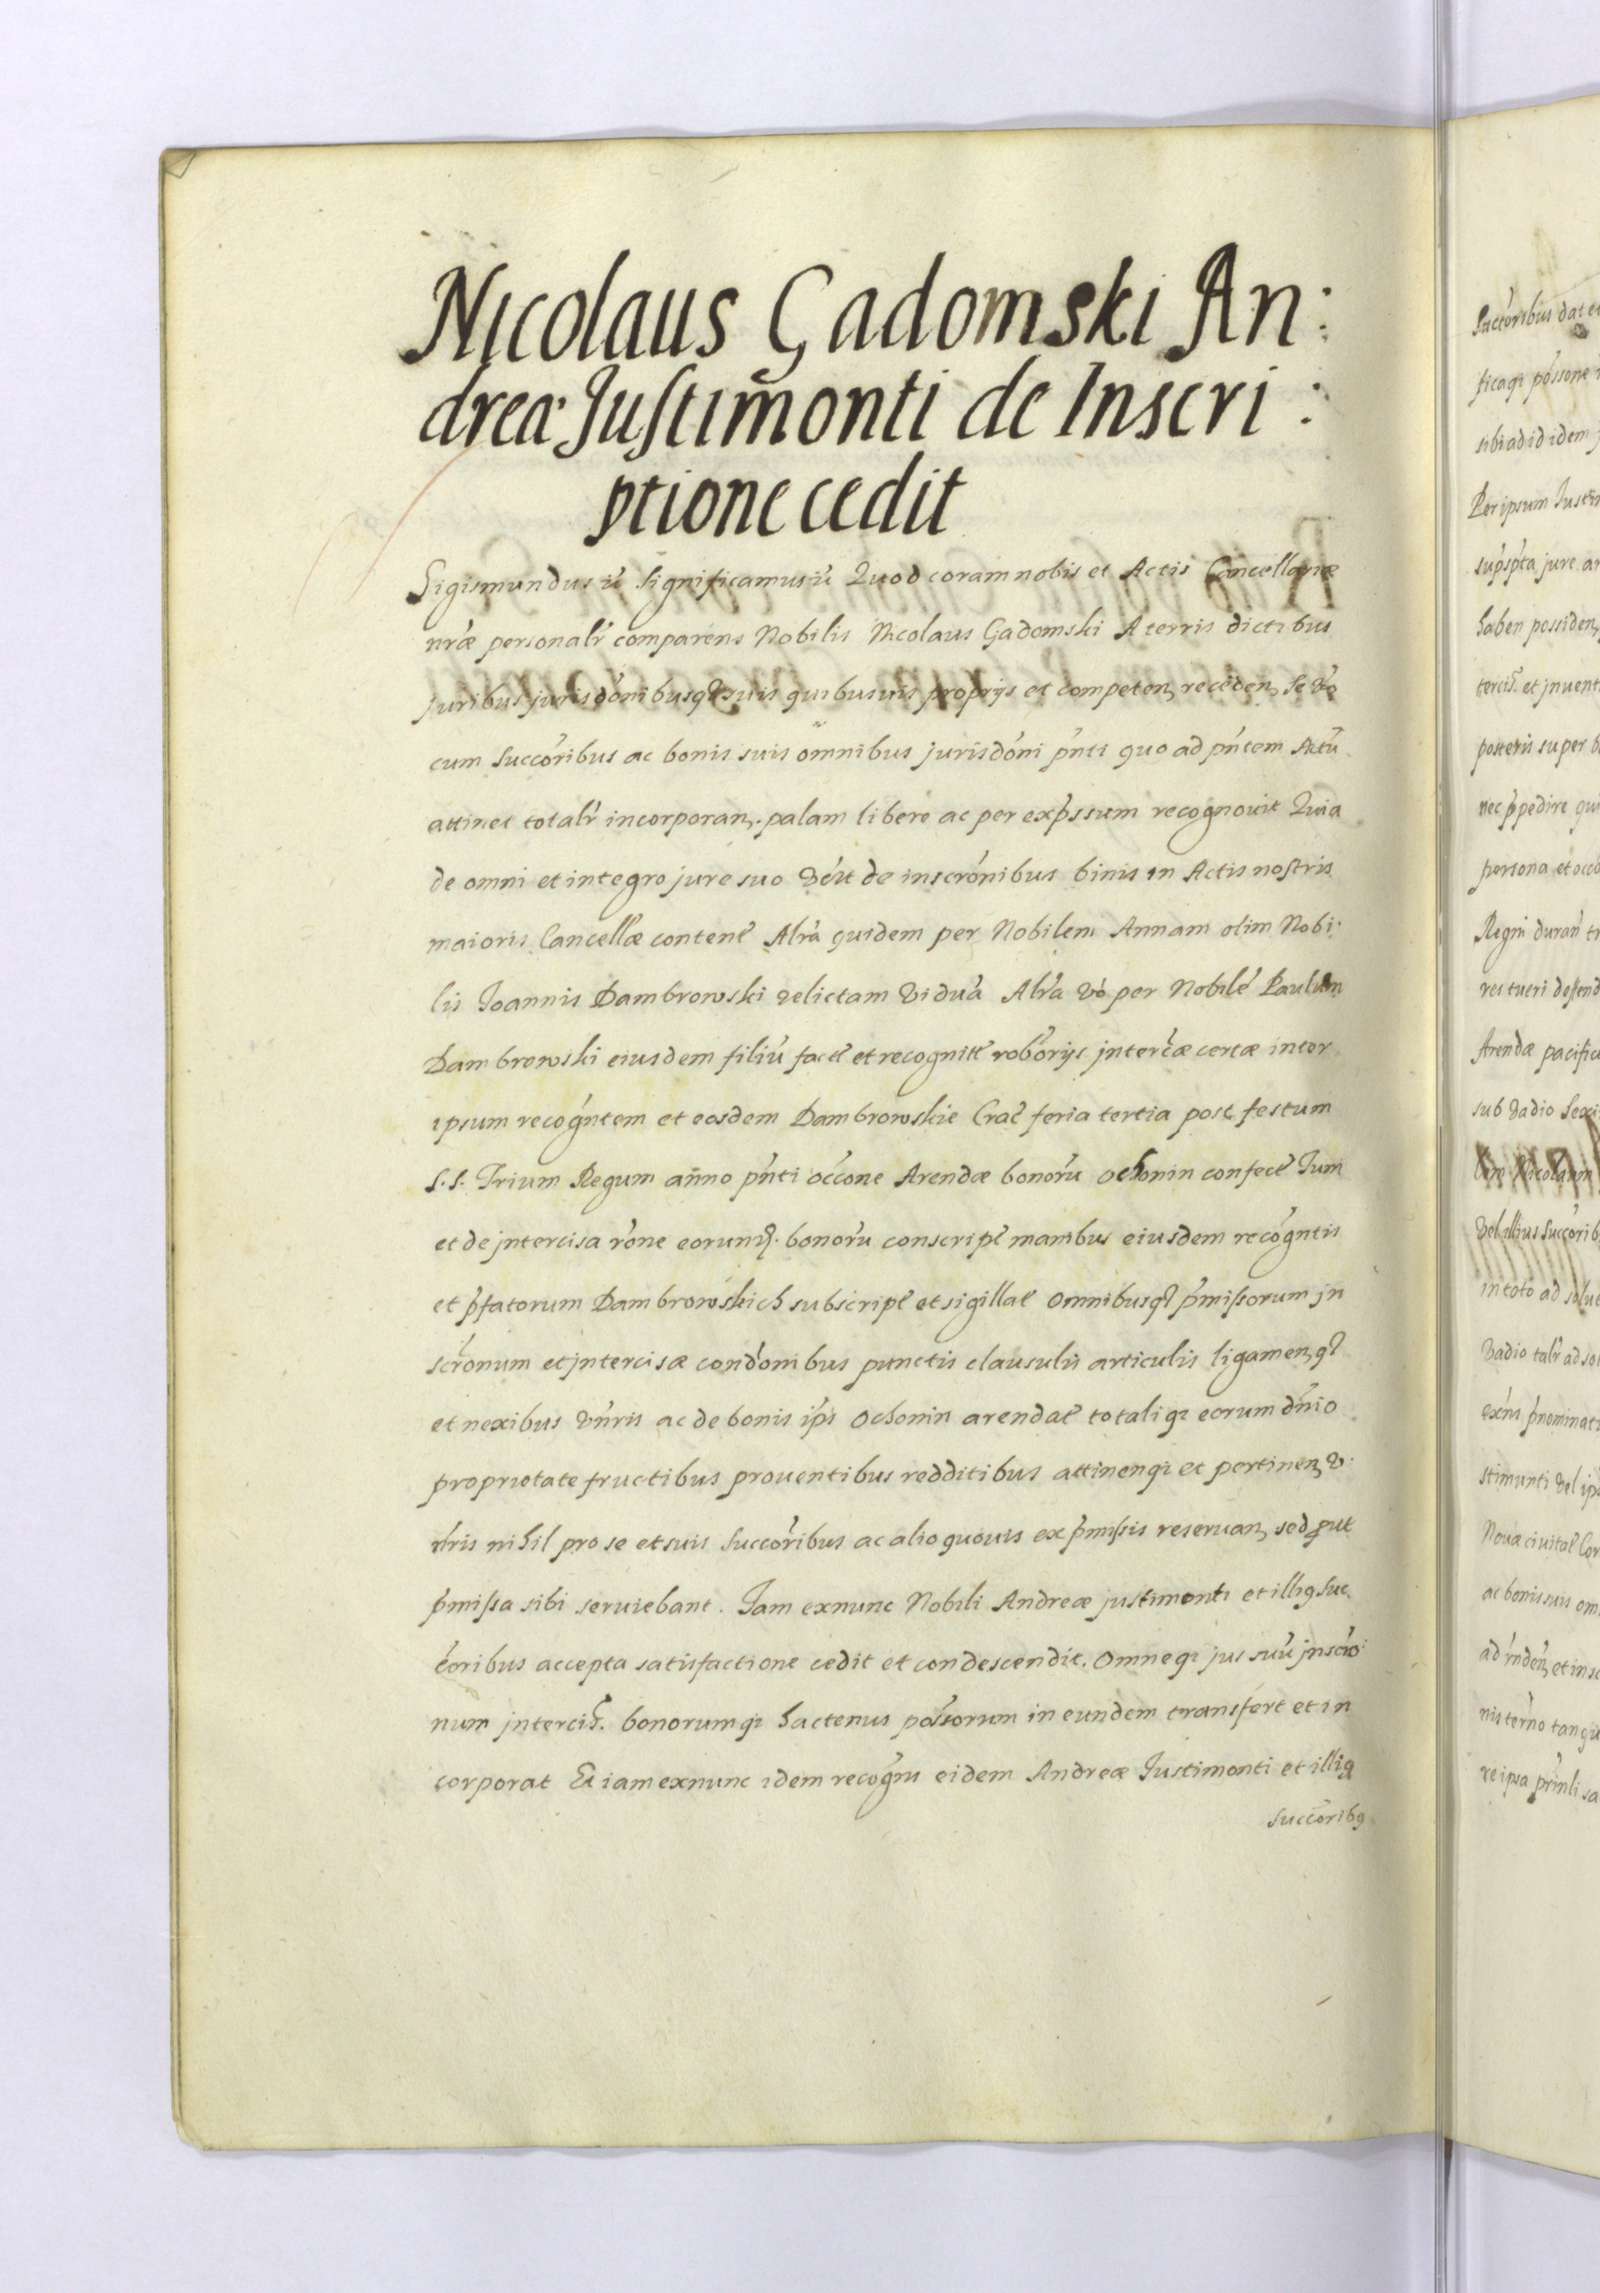 Nicolaus Gadomski An:
dreæ Justimonti de Inscri:
ptione cedit
Sigismundus iū Significamus iū Quod coram nobis et Actis Cancellariæ
nr̄æ personalr̄ comparens Nobilis Nicolaus Gadomski A terris dictibus
juribus jurisdōnibusq₃ suis quibusuis proprijs et competen, receden, Se vō
cum Succōribus ac bonis suis omnibus jurisdōni pn̄ti quo ad pn̄tem Actū
attinet totalr̄ incorporan, palam libere ac per exp̄ssum recognouit Quia
de omni et integro jure suo de inscrōnibus binis in Actis nostris
maioris Cancellæ content̄ Alr̄a quidem per Nobilem Annam olim Nobi:
lis Joannis Dambrowski relictam viduā Alr̄a vō per Nobilē Paulum
Dambrowski eiusdem filiū fact̄ et recognit̄ robōrijs interc̄æ certæ inter
ipsum recogn̄tem et eosdem Dambrowskie Crac̄ feria tertia post festum
S. S. Trium Regum anno pn̄ti occōne Arendæ bonorū Ochonin confect̄ Tum
et de jntercisa rōne eorund. bonorū conscript̄ manibus eiusdem recogn̄tis
et p̄fatorum Dambrowskich subscript̄ et sigillat̄ omnibusq₃ p̄missorum jn
scrōnum et jntercisæ condōnibus punctis clausulis articulis ligamen, q₃
et nexibus vn̄ris ac de bonis ip̄s Ochonin arendat̄ totaliqꝫ eorum dn̄io
proprietate fructibus prouentibus redditibus attinenqꝫ et pertinen, v:
nr̄is nihil pro se et suis Succōribus ac alio quouis ex p̄missis reseruan, sed prout
p̄missa sibi seruiebant. Jam exnunc Nobili Andreæ justimonti et illiq Suc
cōribus accepta satisfactione cedit et condescendit. Omneqꝫ jus suū jnscrō:
num jntercis̄. bonorumqꝫ hactenus possōrum in eundem transfert et in
corporat Et iam exnunc idem recogn̄s eidem Andreæ Justimonti et illiq
succōribq
Succōribus dat et
sibi ad id idem
Per ipsum Justim
sup̄sp̄ta jure ar
haben possiden,
tercis̄. et jnuent
posteris super b
nec p̄pedire qui
persona et occa
Regni duran̄ tr
res tueri defend
Arendæ pacific
sub vadio Sexi
vel illius Succōrib
in toto ad solu
vadio talr̄ ad so
exn̄s p̄nominat
stimunti vel ip̄
Noua ciuitat̄ Cor
ac bonis suis om
nis tern̄o tanqu
re ipsa prin̄li sa